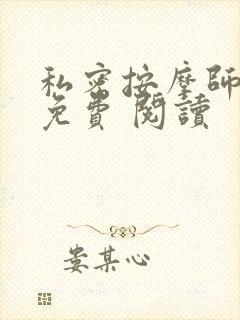 私密按摩師
免費 閱讀
娄某心